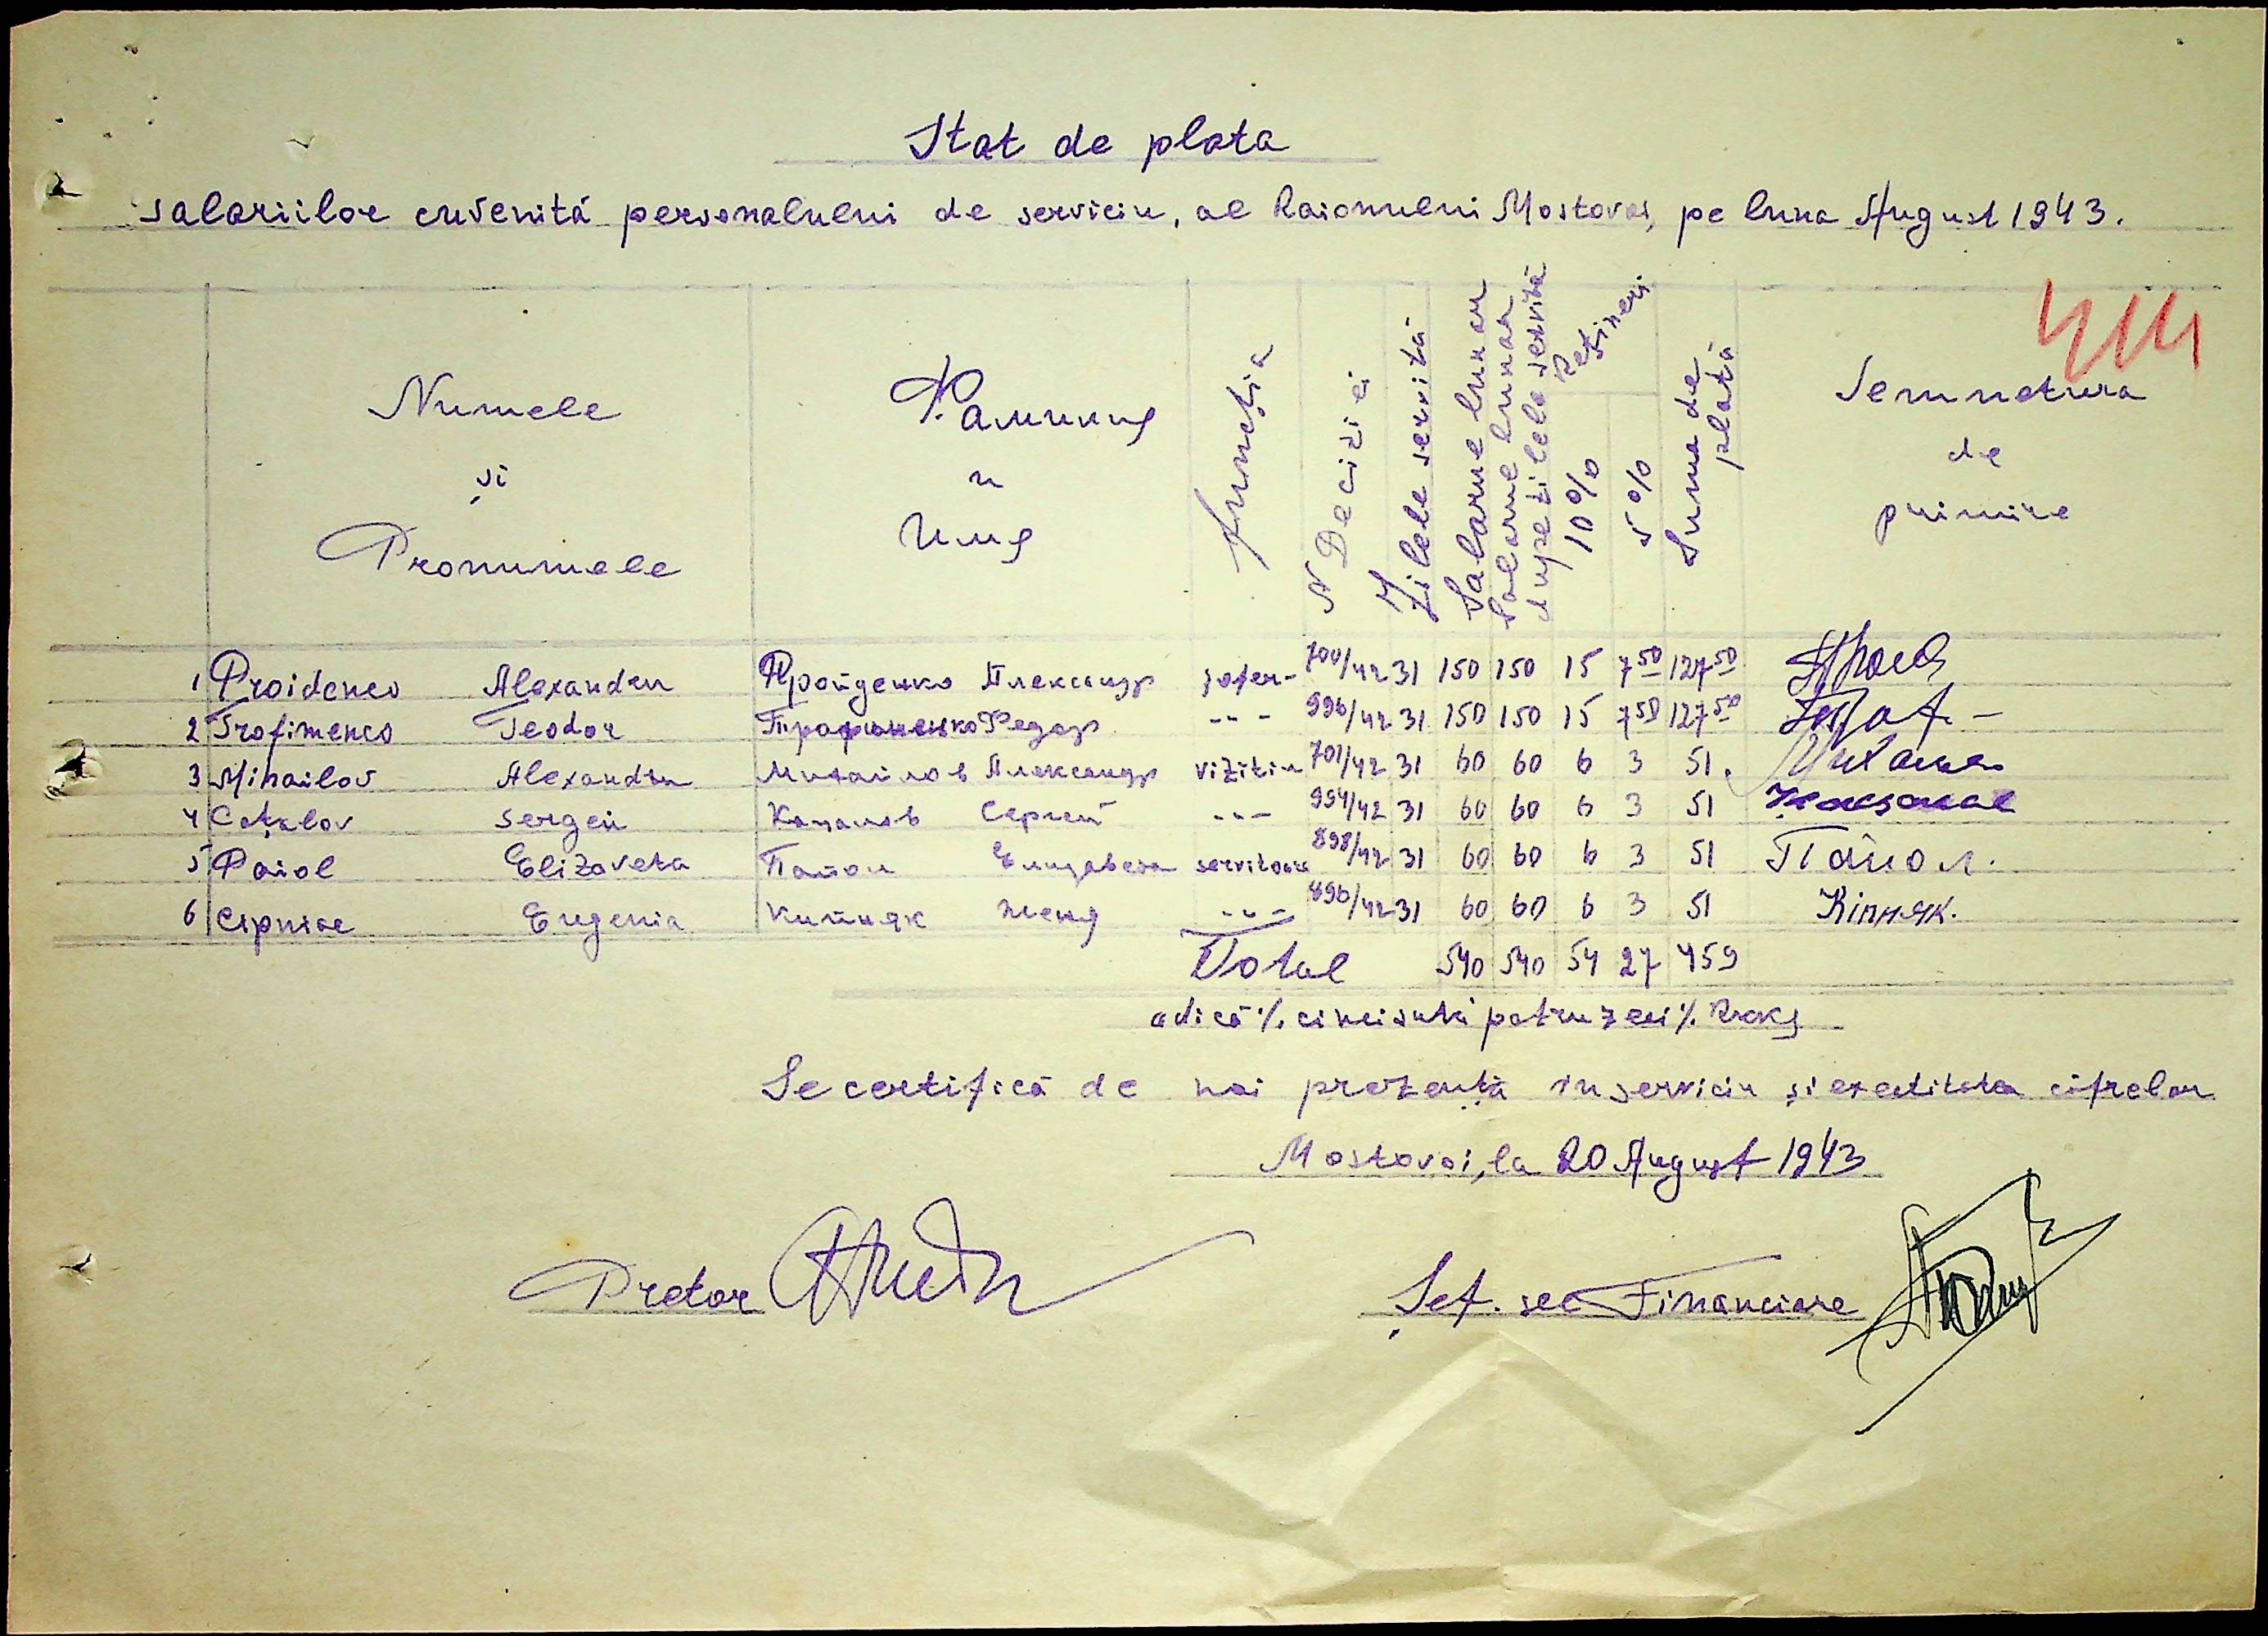 Stat de plata
salariilor cuvenită personalului de serviciu, al Raionului Mostovoi, pe luna August 1943.
Numele și Pronumele Фамилия и Имя Funcția N Deciziei Zilele servită Salarue lunar Salarue lunar dupe zilele servită Rețineri 10% 5% Suma de plată Semnetura de primire
1 Proidenco Alexandru Пройденко Александр șofer- 700/42 31 150 150 15 7 50 127 50
2 Trofimenco Teodor Трофименко Федор -"- 996/42 31 150 150 15 7 50 127 50
3 Mihailov Alexandru Михайлов Александр vizitiu 701/42 31 60 60 6 3 51.
4 Cațalov Sergeiu Кацалов Сергей -"- 994/42 31 60 60 6 3 51
5 Paiol Elizaveta Пайол Елизавета servitoare 898/42 31 60 60 6 3 51 Пайол.
6 Cipniac Eugenia Кипняк Женя -"- 896/42 31 60 60 6 3 51 Кіпняк.
Total 540 540 54 27 459
adică %. cincisută patruzeci %.
Se certifică de noi prezența in serviciu și exactitata cifrelor
Mostovoi, la 20 August 1943
Pretor Șef. sec Financiare